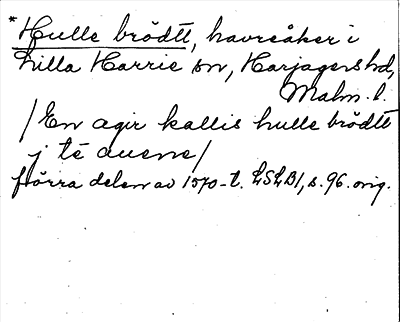 * Hulle brödtt, havreåker i
Lilla Harrie sn, Harjagers hd,
Malm. l.
/ En agir kallis hulle brödtt
j té auene/
förra delen av 1570-t. LSLB1, s. 96. orig.